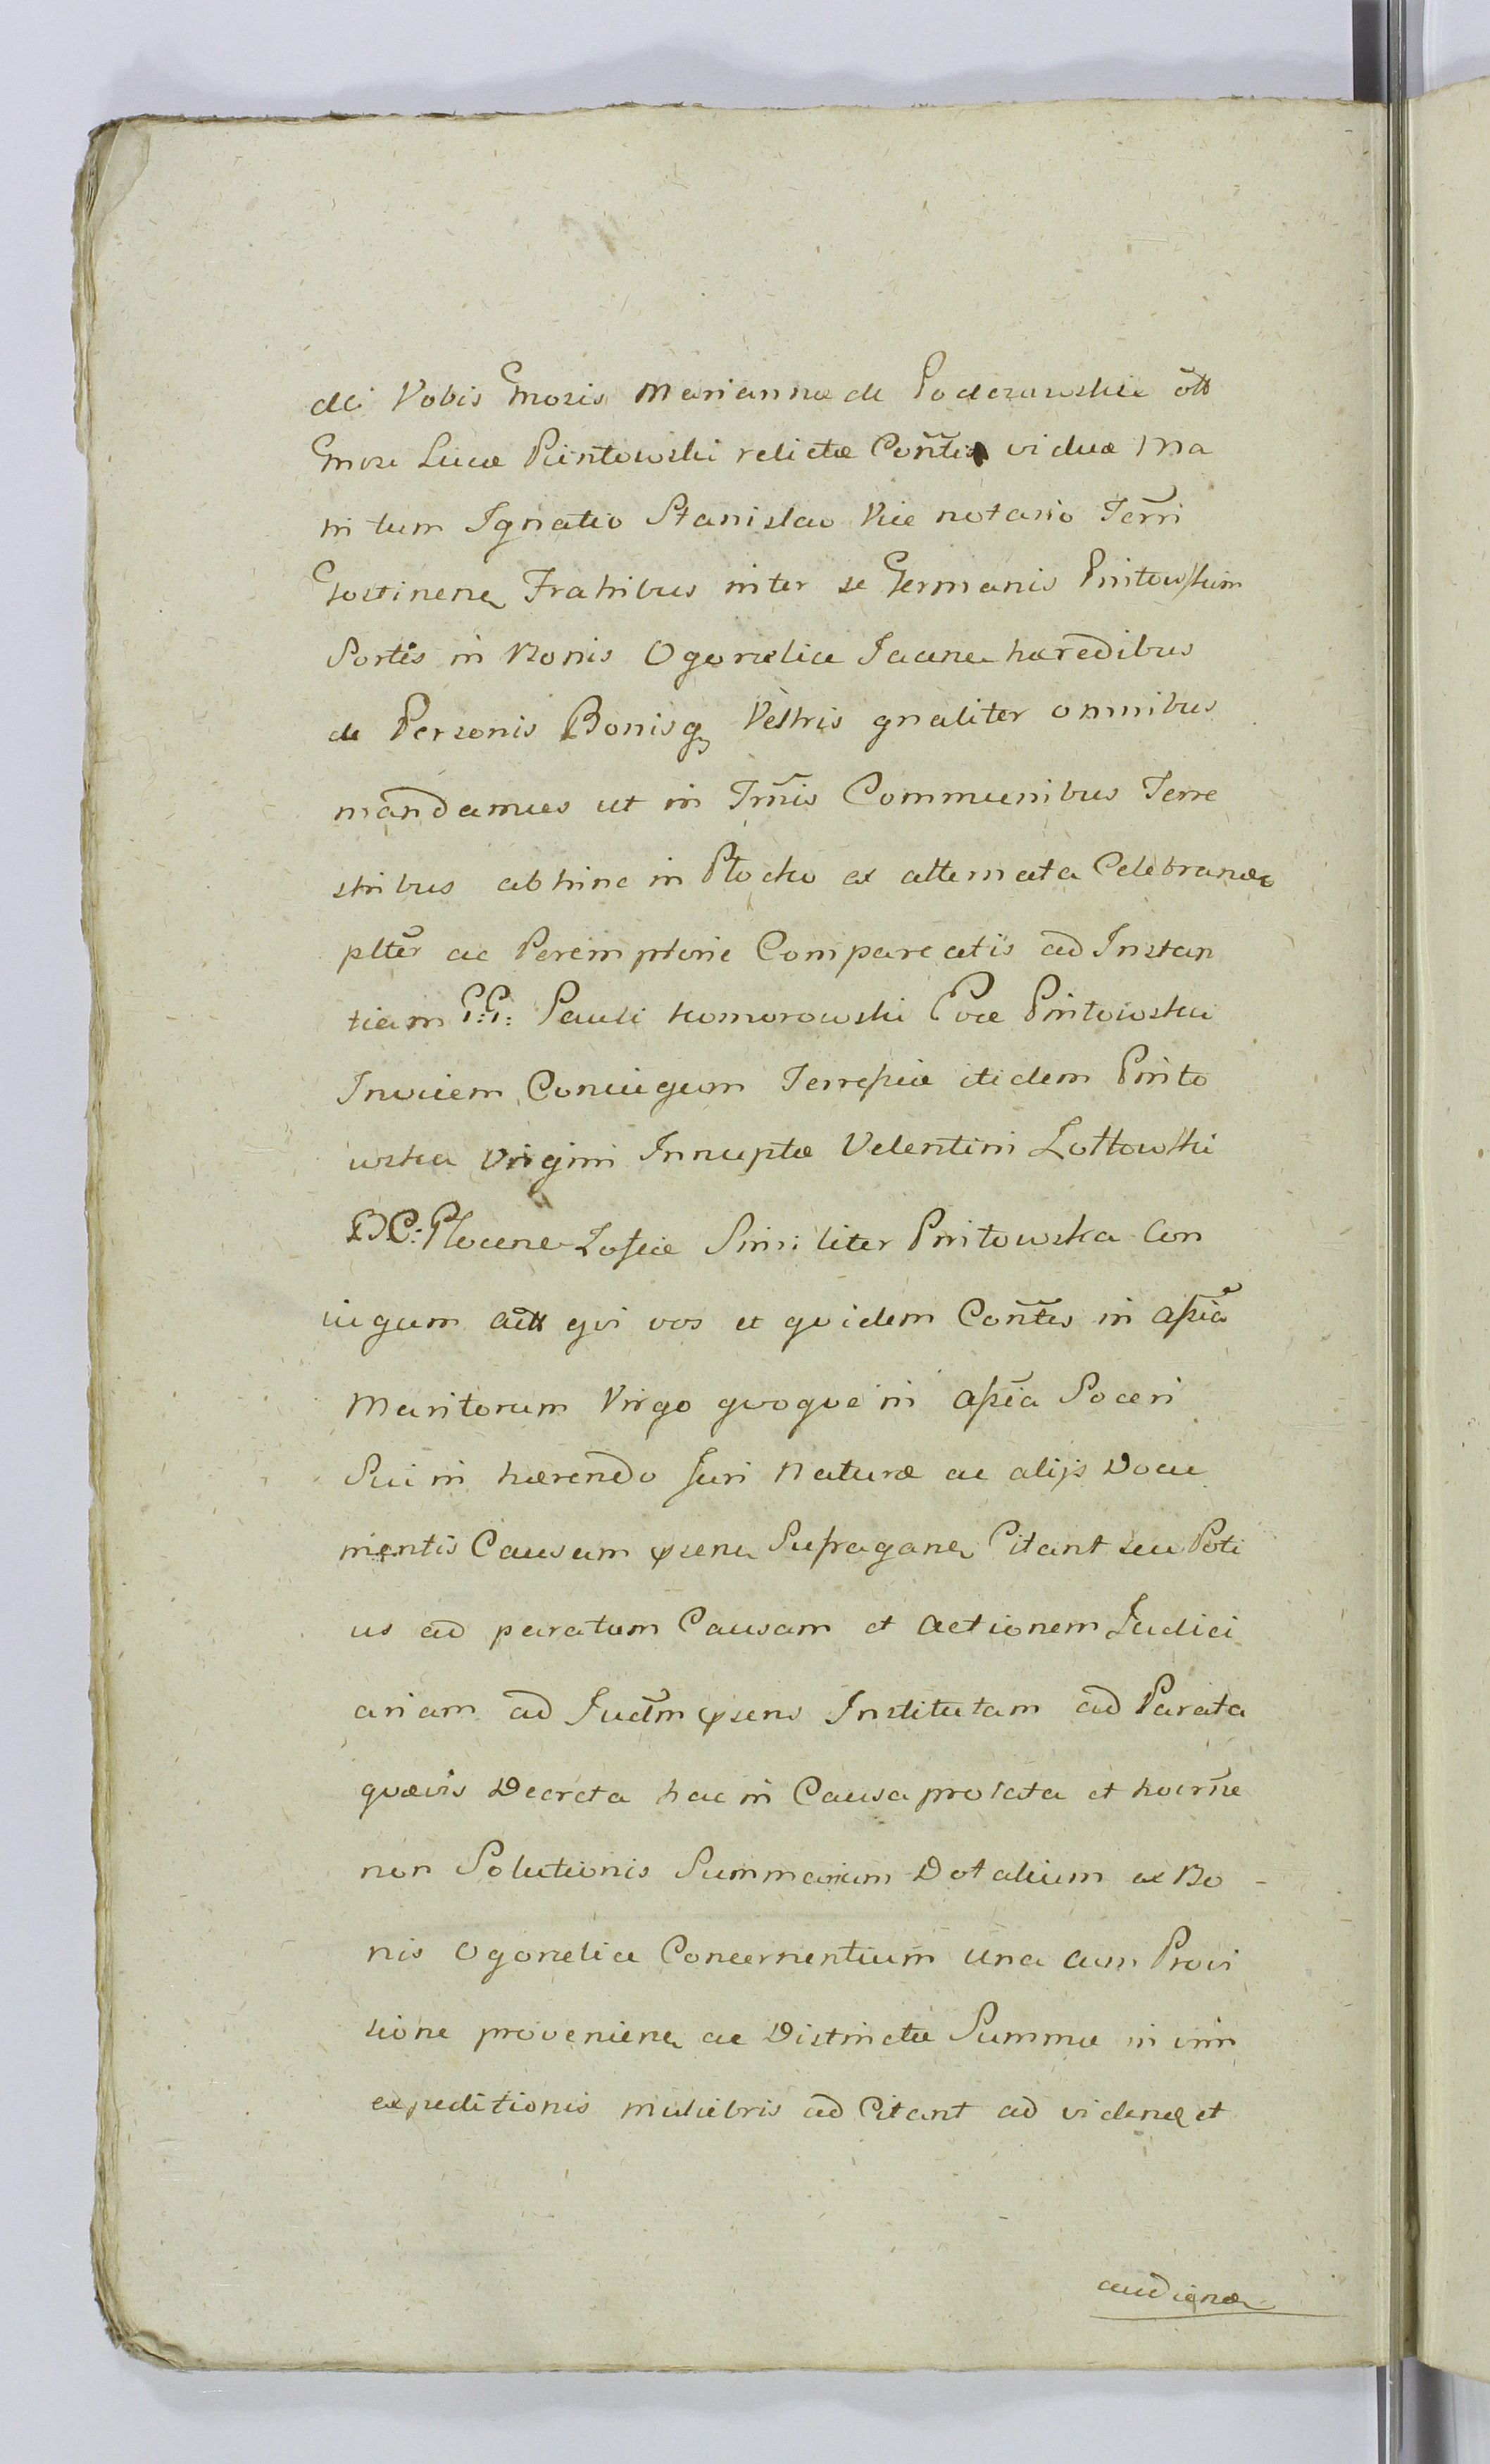 dci Vobis Gnosis Mariannæ de Podczaskie olt
Gnosi Lucæ Pientowski relictæ Contis viduæ Ma
tri tum Ignatio Stanislao Vice notario Terri
Gostinenȩ Fratribus inter se Germanis Pintowskim
Sortis in Bonis Ogorzelice Jacene hæredibus
de Personis Bonisqȝ Vestris gnaliter omnibus
mandamus ut in Tmis Communibus Terre
stribus abhinc in Plocko ex alternata Celebrandæ
plter ac Peremptorie Compareatis ad Instan
tiam G:G: Pauli Komorowski Evæ Pintowska
Invicem Coniugum Teressiæ itidem Pinto
wska Virgini Innuptæ Valentini Zottowski
B:C: Plocene Zofiæ Similiter Pintowska Con
iugum att qvi vos et qvidem Contes in assia
Maritorum Virgo qvoqve in assia Soceri
Sui in hærendo Juri Naturæ ac alijs Docu
mentis Causam psene Sufragane Citant seu Poti
us ad paratam Causam et Actionem Judici
ariam ad Juctm psens Institutam ad Parata
qvævis Decreta hac in Causa prolata et hocrne
non Solutionis Summarum Dotalium ex Bo -
nis Ogorzelice Concernentium una cum Provi
sione proveniene ac Distinctæ Summæ in vim
expeditionis muliebris ad Citant ad videnȩ et
audienȩ